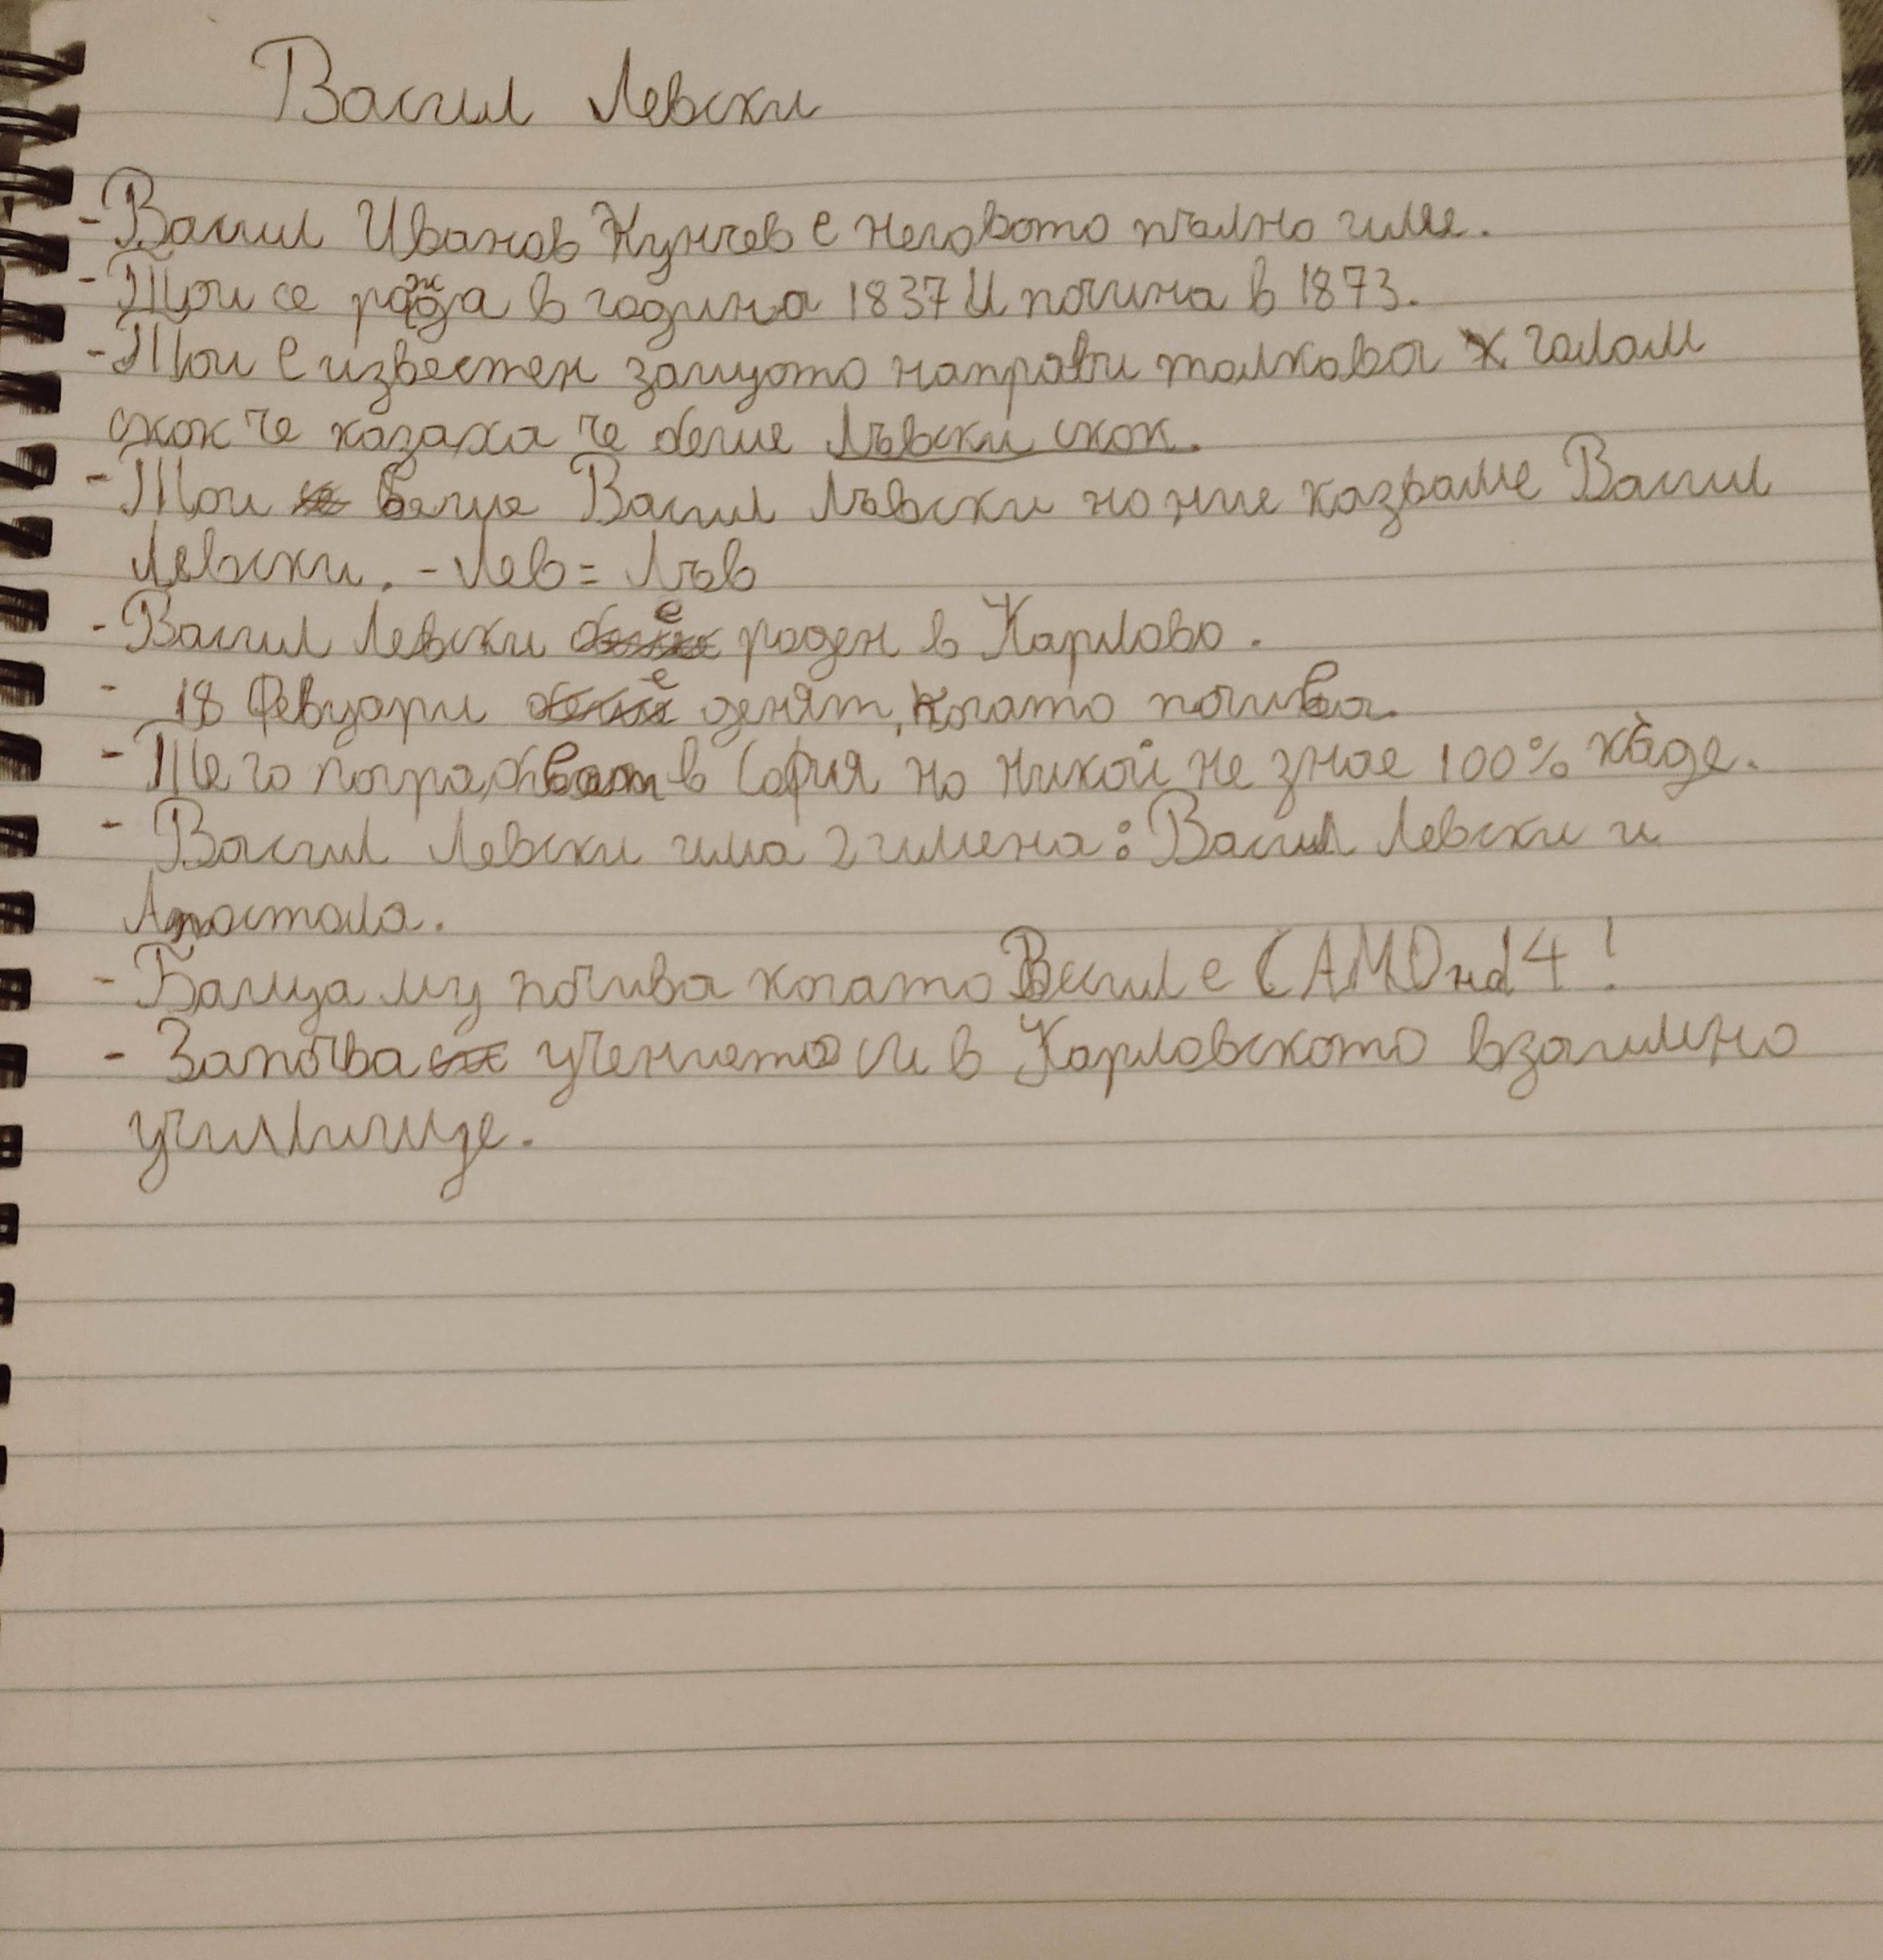 Васил Левски
- Васил Иванов Кунчев е неговото пълно име.
- Той се ражда в година 1837 И почина в 1873.
- Той е известен защото направи толкова голам
скок че казаха че беше Лъвски скок.
- Той беше Васил Лъвски но ние казваме Васил
Левски. - Лев = Лъв
- Васил Левски е роден в Карлово.
- 18 Февуари е денят, когато почива.
- Те го пограбват в София но никой не знае 100% къде.
- Васил Левски има 2 имена: Васил Левски и
Апостола.
- Баща му почива когато Васил е САМО на 14!
- Започва учението си в Карловското взаимно
училище.